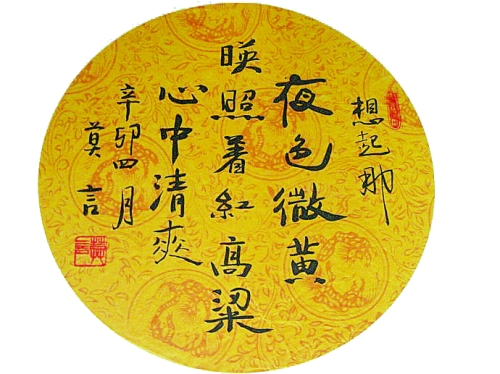 想起那
夜色微黄
暎照着红高粱
心中清爽
辛卯四月
莫言